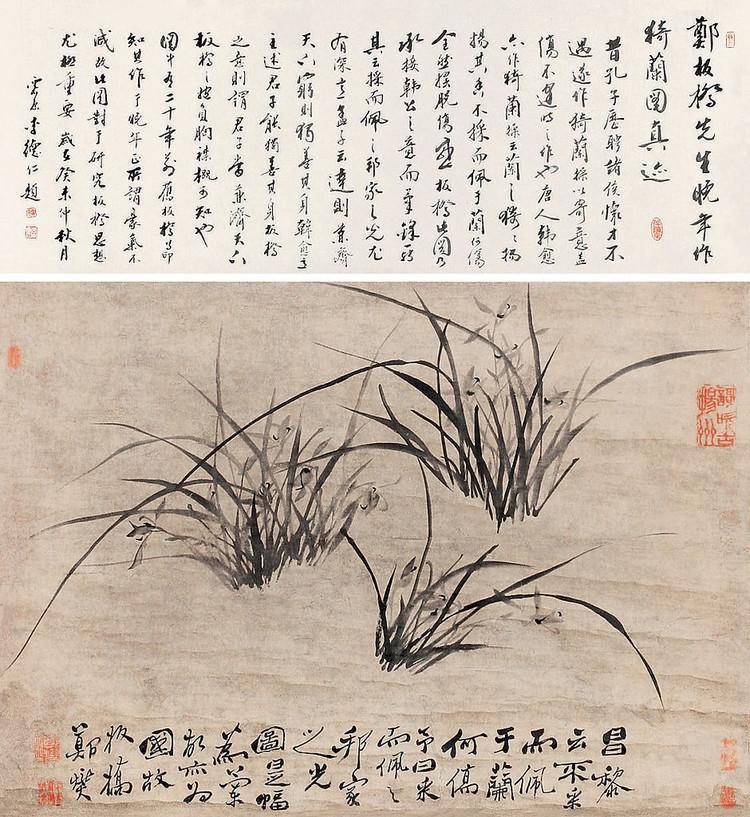 鄭板橋先生晚年作
猗蘭圖真迹
昔孔子歷聘諸侯懷才不
遇遂作猗蘭操以寄意蓋
傷不逢時之作也唐人韓愈
亦作猗蘭操云蘭之猗猗揚
揚其香不採而佩于蘭何傷
全然擺脫傷感板橋此圖乃
承接韓公之意而筆鋒所
其云採而佩之邦家之光尤
有深意孟子云達則兼濟
天下窮則獨善其身韓愈
主述君子能獨善其身板橋
之意則謂君子當兼濟天下
板橋之負胸襟概可知也
圖中有二十年前舊板橋之印
知其作于晚年正所謂豪氣不
減故此圖對于研究板橋思想
尤為重要 歲在癸未仲秋月
李德仁題
歌吹古揚州
昌黎
云不采
而佩
于蘭
何傷
予曰采
而佩之
邦家
之光
圖是幅
蘭
亦為
國故
板橋
鄭燮